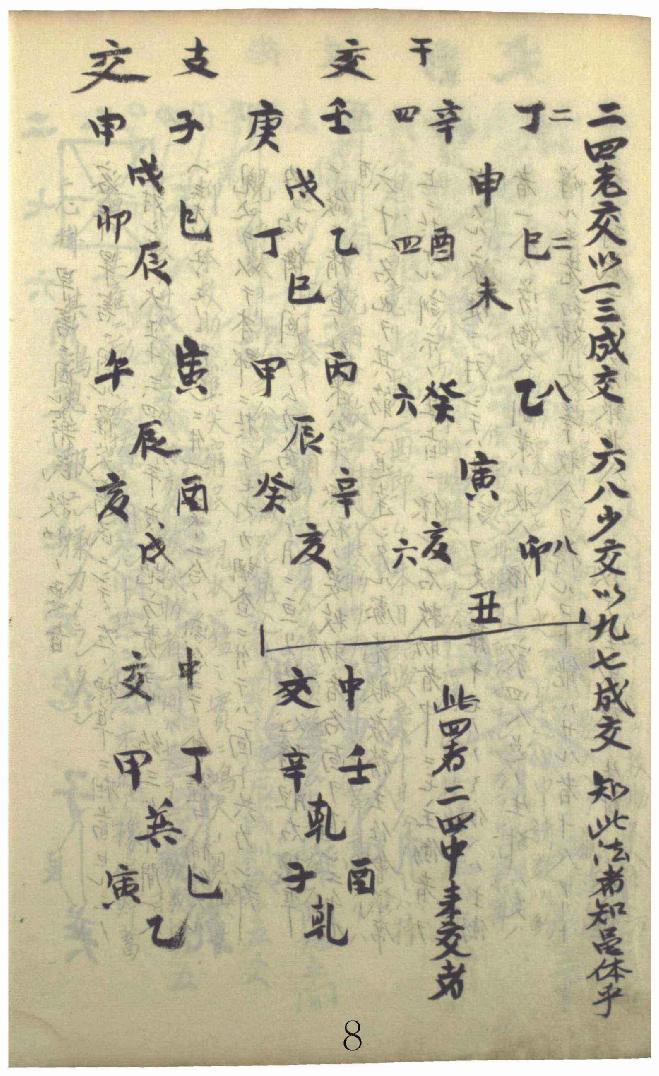 二四老交以一三成交 六八少交以九七成交 知此法者知吕休乎
二 二 八 八
丁 巳 乙 卯
申 未 寅 丑
辛 酉 癸 亥
四 四 六 六
此四者二四中来交者
干
交 壬 乙 丙 辛
戊 巳 辰 亥
庚 丁 甲 癸
中 壬 酉
乹 乹
交 辛 子
支 子 巳 寅 酉
戌 辰 辰 戌
交 申 卯 午 亥
中 丁 巳
乙
交 甲 寅
8